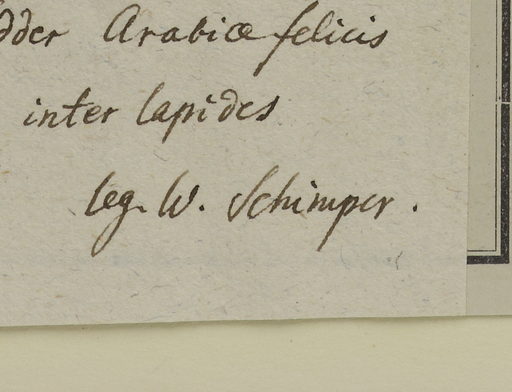 dder Arabiæ felicis
inter lapides
leg. W. Schimper.